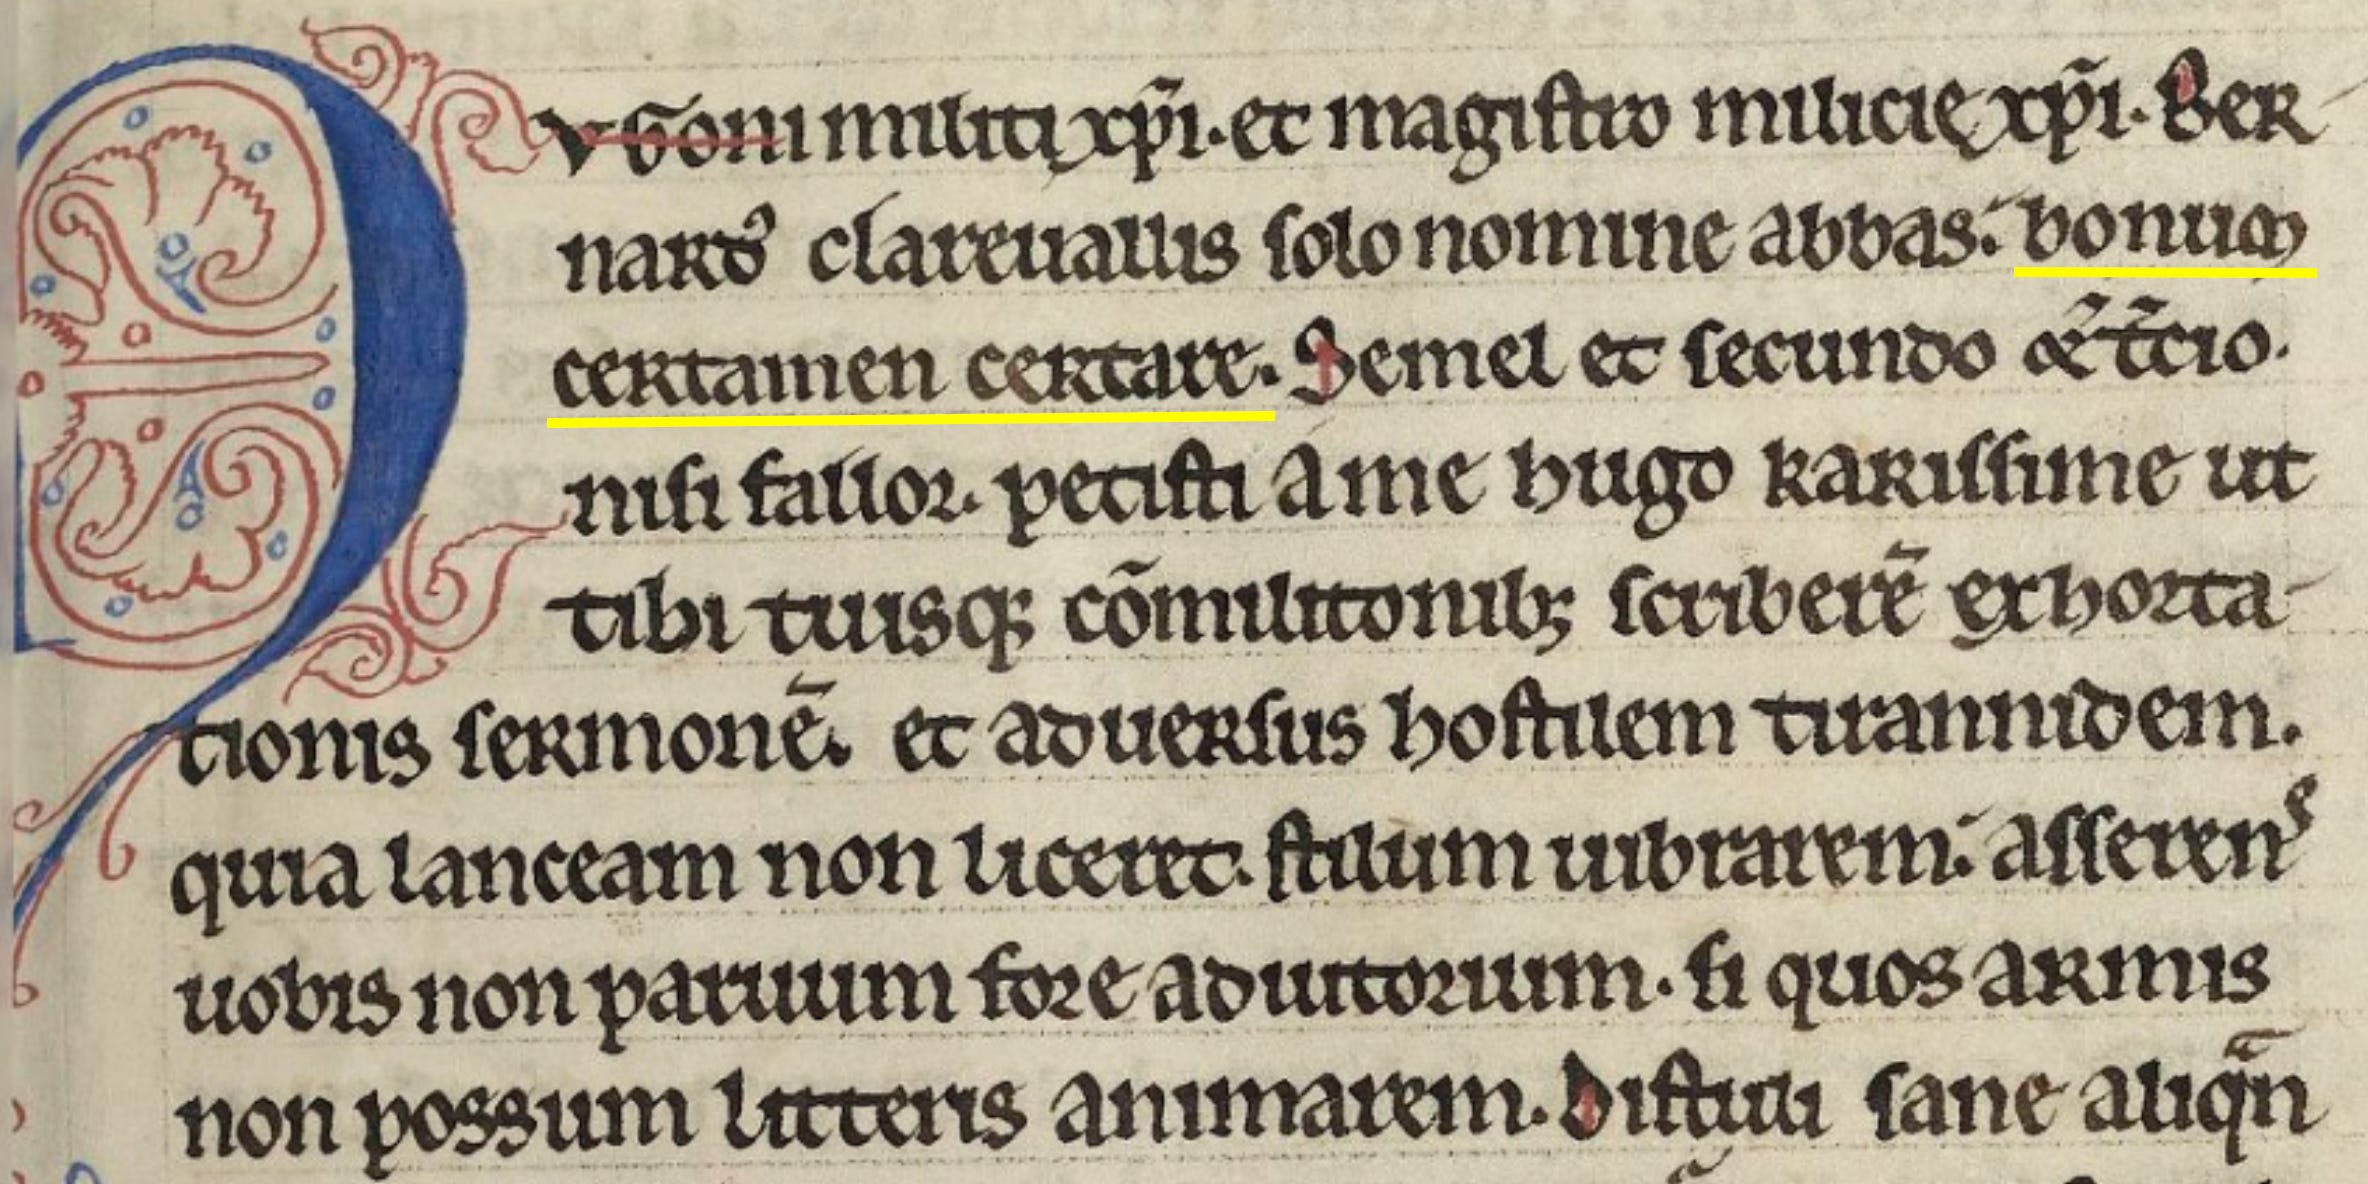 HVGoni militi xp̄i. et magistro milicię xp̄i. Ber
nardꝰ clareuallis solo nomine abbas. bonum
certamen certare. Semel et secundo & t̄cio.
nisi fallor. petisti a me hugo karissime ut
tibi tuisq; cōmilitonib; scriberē exhorta-
tionis sermonē. et aduersus hostilem tirannidem.
quia lanceam non liceret. stilum uibrarem. asserens
uobis non paruum fore adiutorium. si quos armis
non possum litteris animarem. Distuli sane aliqᷓn